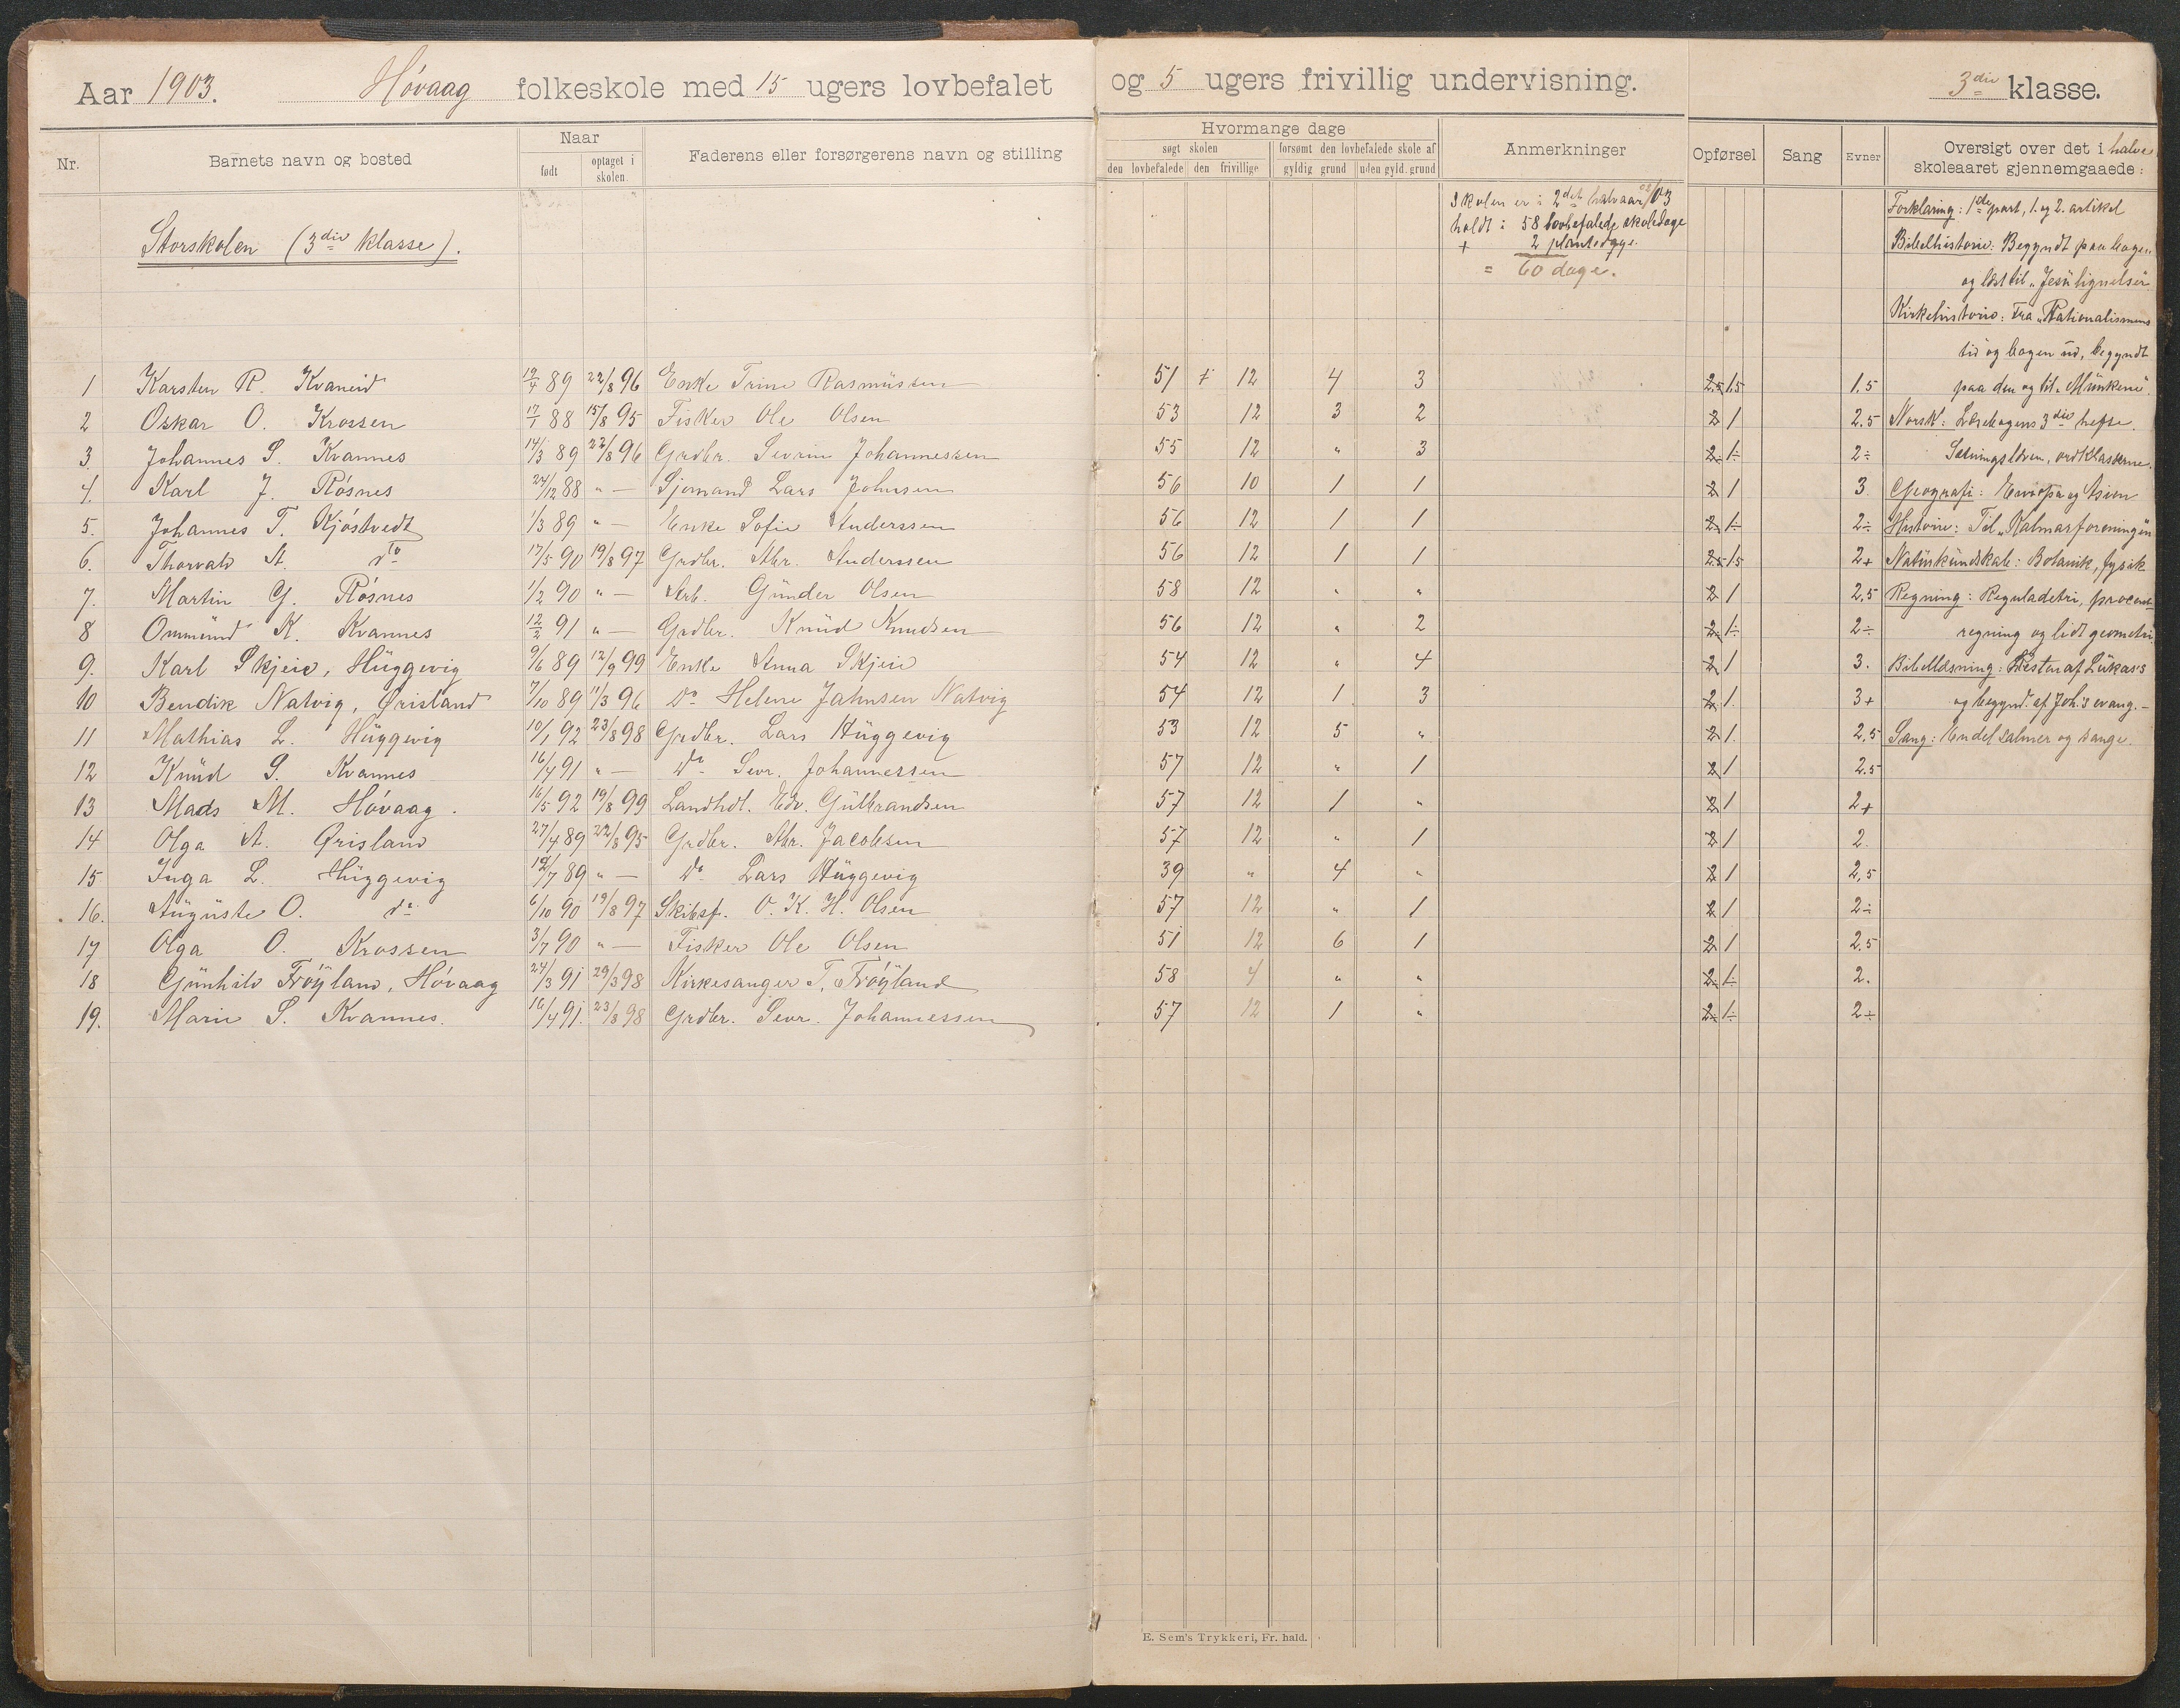 Aar 1903. Høvaag folkeskole med 15 ugers lovbefalet og 5 ugers frivillig undervisning. 3die klasse.
Nr. Barnets navn og bosted Naar født optaget i skolen. Faderens eller forsørgerens navn og stilling
Hvormange dage
søgt skolen forsømt den lovbefalede skole af
den lovbefalede den frivillige gyldig grund uden gyld. grund
Anmerkninger Opførsel Sang Evner Oversigt over det i halve skoleaaret gjennemgaaede:
Storskolen (3die klasse).
Skolen er i 2det halvaar 03
holdt i 58 lovbefalede skoledage
+ 2 plantedage.
= 60 dage.
1 Karsten R. Kvaneid 19/4 89 22/8 96 Enke Trine Rasmüssen 51 + 12 4 3 2.5 1.5 1.5
2 Oskar O. Krossen 17/1 88 15/8 95 Fisker Ole Olsen 53 12 3 2 2 1 2.5
3. Johannes S. Kvannes 14/3 89 22/8 96 Grdbr. Sevrin Johannessen 55 12 " 3 2÷ 1÷ 2÷
4. Karl J. Røsnes 24/12 88 " — Sjømand Lars Johnsen 56 10 1 1 2 1 3
5. Johannes T. Kjøstvedt 1/3 89 " — Enke Sofie Anderssen 56 12 1 1 2÷ 1÷ 2÷
6. Thorvald A. do 17/5 90 19/8 97 Grdbr. Abr. Anderssen 56 12 1 1 2.5 1.5 2+
7. Martin G. Røsnes 1/2 90 " — Arb. Günder Olsen 58 12 " " 2 1 2,5
8 Ommünd K. Kvannes 12/2 91 " — Grdbr. Knüd Knudsen 56 12 " 2 2÷ 1÷ 2÷
9. Karl Skjeie, Hüggevig 9/6 89 12/9 99 Enke Anna Skjeie 54 12 " 4 2 1 3.
10 Bendik Natvig, Grisland 7/10 89 11/3 96 Do Helene Jahnsen Natvig 54 12 1 3 2 1. 3+
11 Mathias L. Hüggevig 10/1 92 23/8 98 Grdbr. Lars Hüggevig 53 12 5 " 2 1. 2,5
12 Knüd S. Kvannes 16/4 91 " — Do Sevr. Johannessen 57 12 " 1 2 1 2.5
13 Mads M. Høvaag. 16/5 92 19/8 99 Landhdl. Edv. Gülbrandsen 57 12 1 " 2 1 2+
14 Olga A. Grisland 27/4 89 22/8 95 Grdbr. Abr. Jacobsen 57 12 " 1 2 1 2.
15 Inga L. Hüggevig 19/7 89 " — Do Lars Hüggevig 39 " 4 " 2 1 2,5
16. Aügüste O. do 6/10 90 19/8 97 Skibsf. O. K. H. Olsen 57 12 " 1 2 1 2÷
17 Olga O. Krossen 3/7 90 " — Fisker Ole Olsen 51 12 6 1 2 1 2.5
18 Günhild Frøÿland, Høvaag 24/3 91 29/3 98 Kirkesanger T. Frøÿland 58 4 " " 2÷ 1÷ 2.
19. Marie S. Kvannes. 16/4 91. 23/8 98 Grdbr. Sevr. Johannessen 57 12 1 " 2÷ 1÷ 2÷
Forklaring: 1ste part, 1. og 2. artikel
Bibelhistorie: Begyndt paa bogen
og læst til "Jesü lignelser"
Kirkehistorie: Fra "Rationalismens
tid" og bogen üd, begyndt
paa den og til "Münkene".
Norsk: Læsebogens 3die hefte.
Sætningslæren, ordklasserne.
Geografi: Europa og Asien
Historie: Til "Kalmarforeningen
Natürkündskab: Botanik, fysik
Regning: Reguladetri, procent-
regning og lidt geometri
Bibellæsning: Resten af Lükas's
og begynd. af Joh.'s evang.—
Sang: Endel salmer og sange.
E. Sem's Trykkeri, Fr. hald.